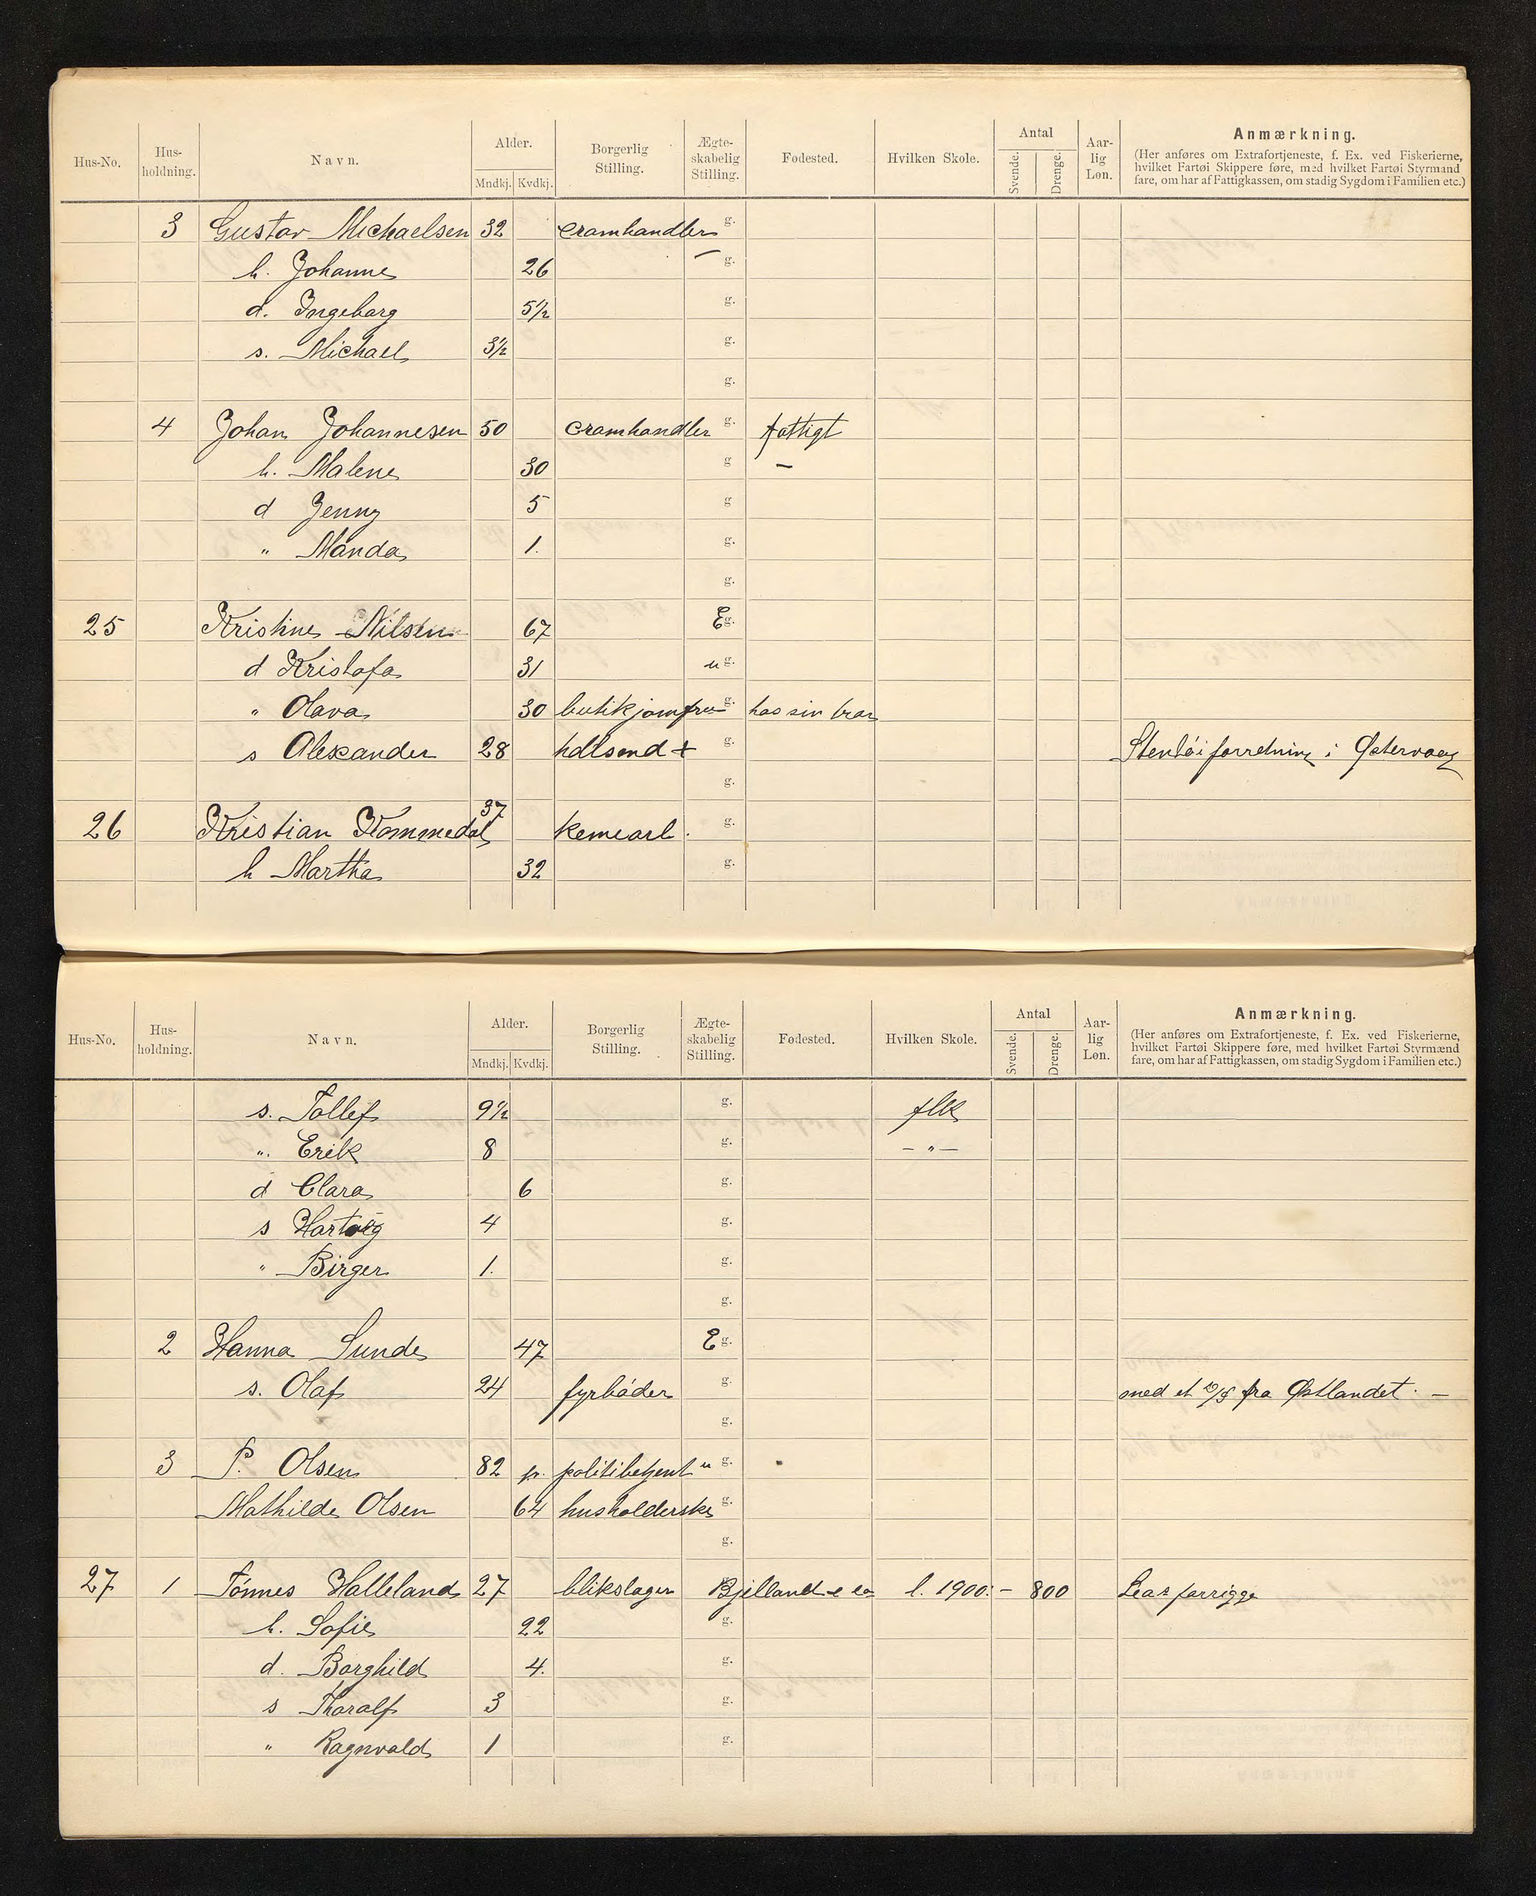 Hus-No. Hus-holdning. Navn. Alder. Mndkj. Kvdkj. Borgerlig Stilling. Ægte-skabelig Stilling. Fødested. Hvilken Skole. Antal Svende. Drenge. Aar-lig Løn. Anmærkning.
(Her anføres om Extrafortjeneste, f. Ex. ved Fiskerierne,
hvilket Fartøi Skippere føre, med hvilket Fartøi Styrmænd
fare, om har af Fattigkassen, om stadig Sygdom i Familien etc.)
3 Gustav Michaelsen 32 cramhandler g.
h. Johanne 26 g.
d. Ingeborg 5½ g.
s. Michael 3½ g.
g.
4 Johan Johannesen 50 cramhandler g. fattigt
h. Malene 30 g —
d Jenny 5 g
" Manda 1. g.
g.
25 Kristine Nilsen 67 E g.
d Kristofa 31 u g.
" Olava 30 butikjomfru g. hos sin bror
s Alexander 28 hdlsmd + g. Stentøiforretning i Østervaag
g.
26 Kristian Kommedal 37 kemearb. g.
h Martha 32 g.
Hus-No. Hus-holdning. Navn. Alder. Mndkj. Kvdkj. Borgerlig Stilling. Ægte-skabelig Stilling. Fødested. Hvilken Skole. Antal Svende. Drenge. Aar-lig Løn. Anmærkning.
(Her anføres om Extrafortjeneste, f. Ex. ved Fiskerierne,
hvilket Fartøi Skippere føre, med hvilket Fartøi Styrmænd
fare, om har af Fattigkassen, om stadig Sygdom i Familien etc.)
s. Tollef 9½ g. flk
". Erik 8 g. — " —
d Clara 6 g.
s Hartvig 4 g.
" Birger 1. g.
g.
2 Hanna Sunde 47 E g.
s. Olaf 24 fyrbøder g. med et D/S fra Østlandet. —
g.
3 P. Olsen 82 p. politibetjent u g.
Mathilde Olsen 64 husholderske g.
g.
27 1 Tønnes Halleland 27 blikslager Bjelland & co l. 1900. — 800
h. Sofie 22 g.
d. Borghild 4. g.
s Thoralf 3 g.
" Ragnvald 1 g.